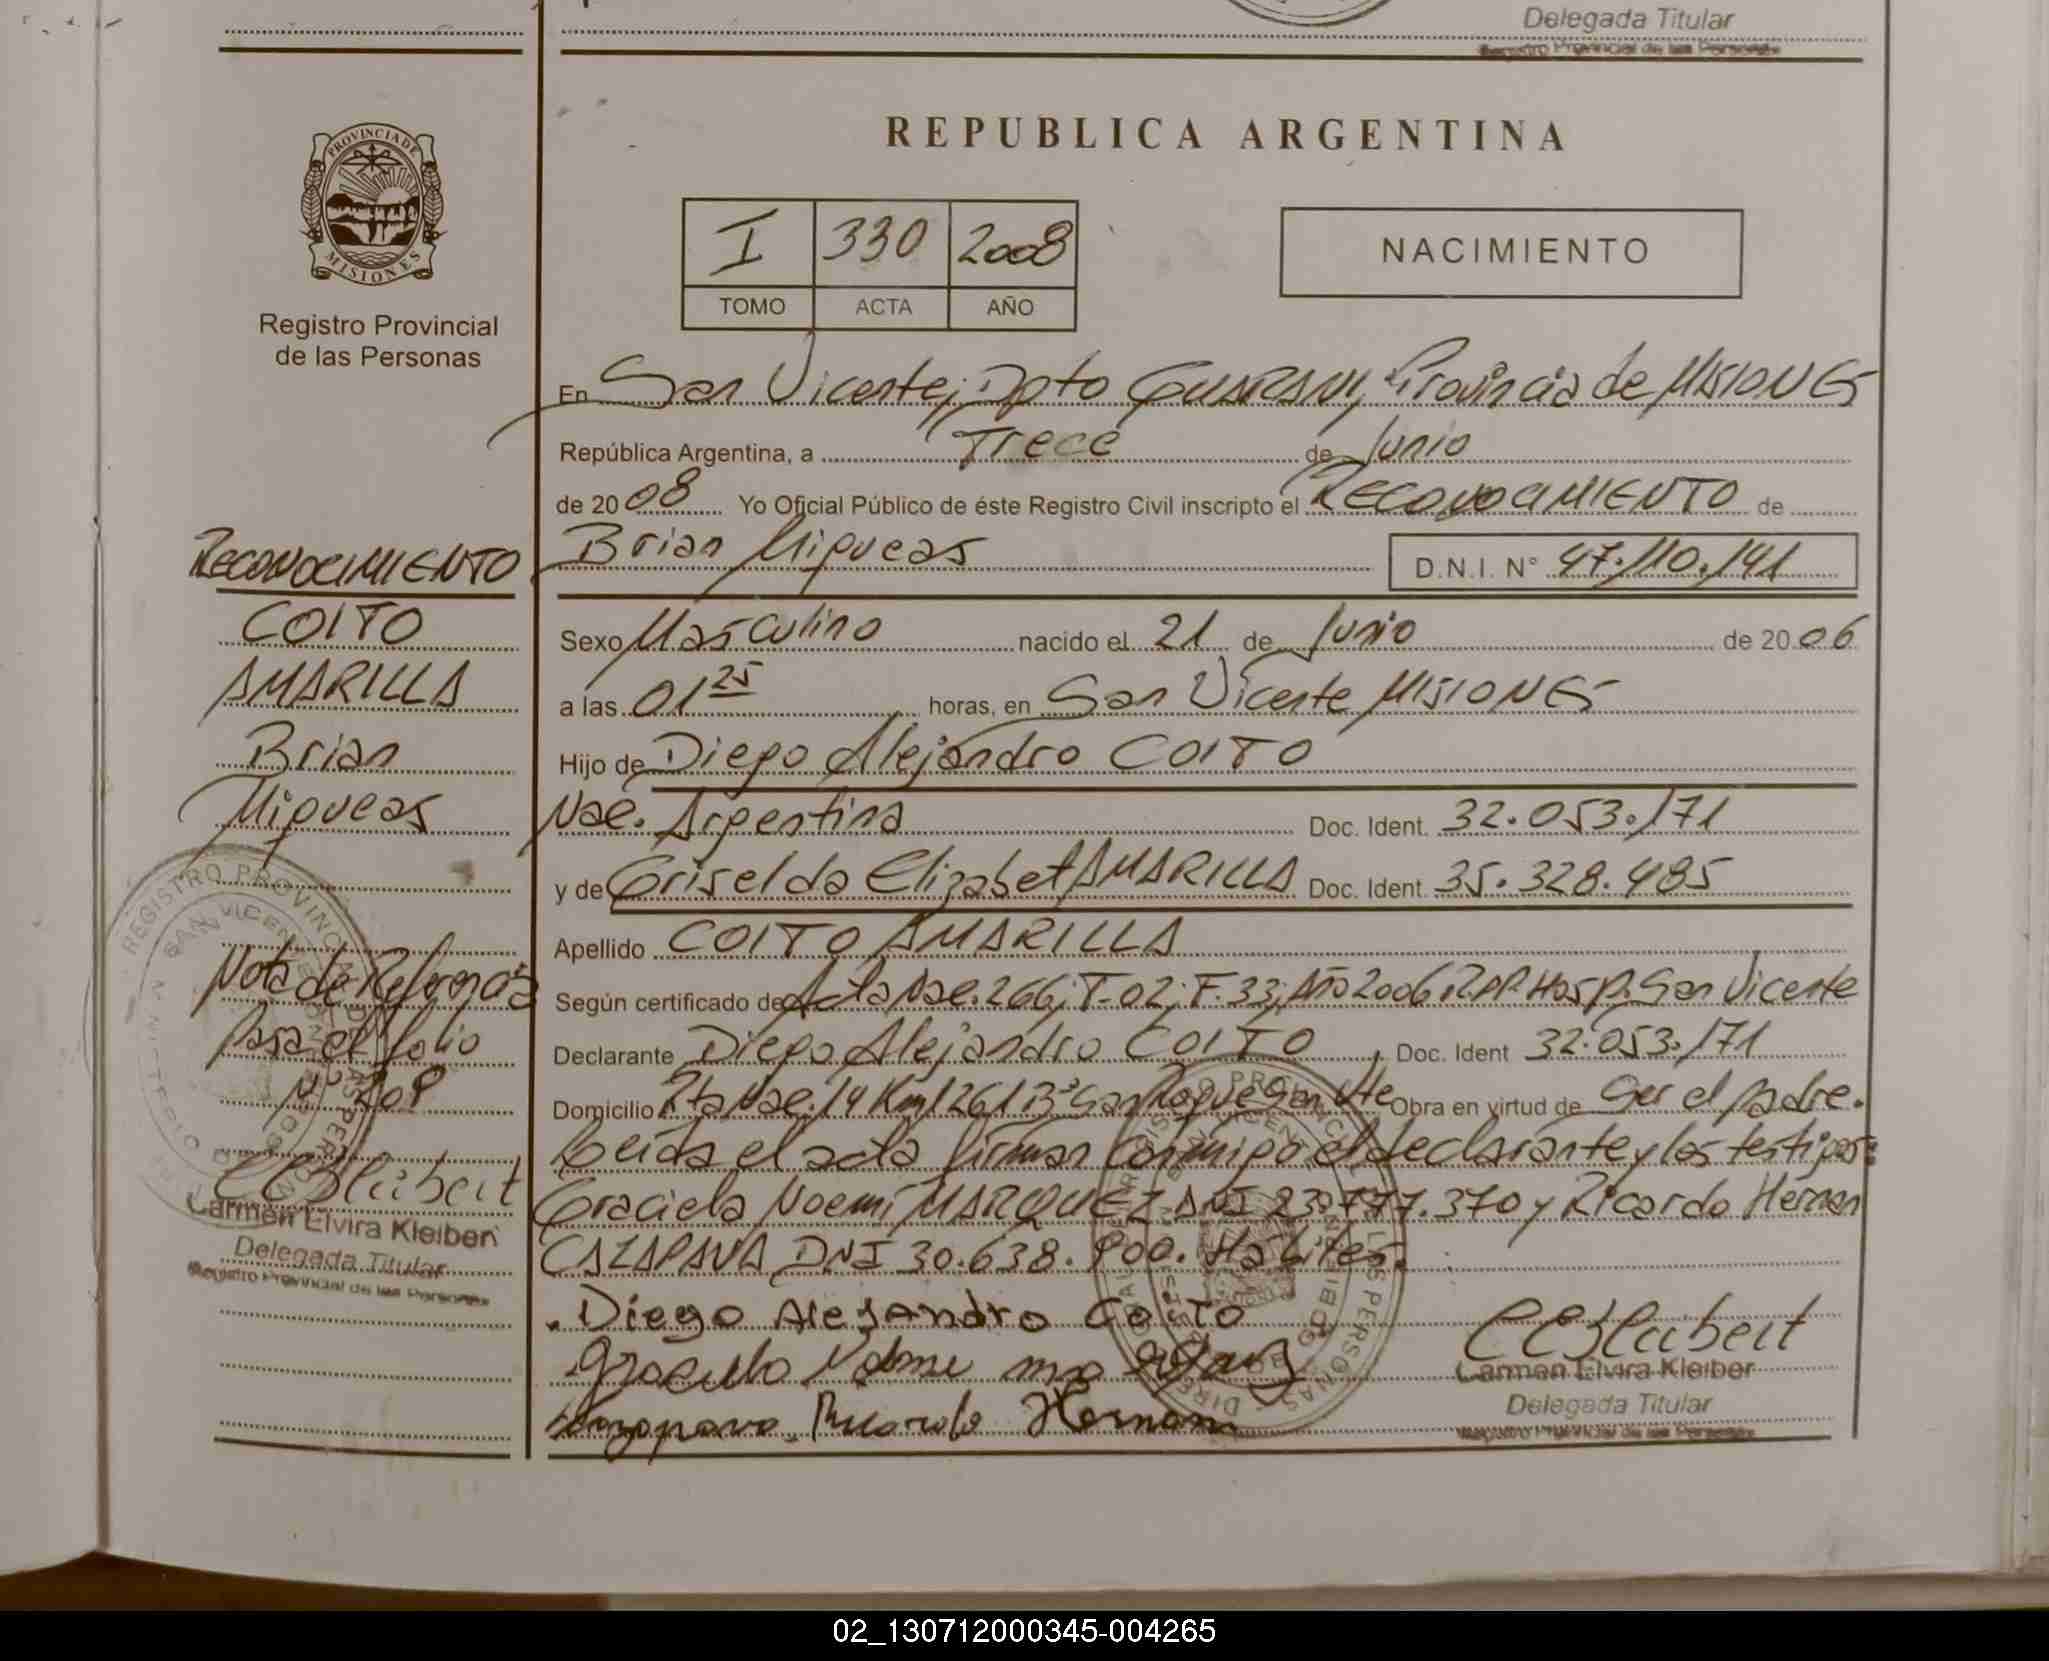 Delegada Titular
Registro Provincial de las Personas
PROVINCIA DE
MISIONES
Registro Provincial
de las Personas
REPUBLICA ARGENTINA
I 330 2008
TOMO ACTA AÑO
NACIMIENTO
En San Vicente, Dpto GUARANI, Provincia de MISIONES
República Argentina, a Trece de Junio
de 2008 Yo Oficial Público de éste Registro Civil inscripto el RECONOCIMIENTO de
Brian Miqueas D.N.I. N° 47.110.141
Sexo Masculino nacido el 21 de Junio de 2006
a las 01 25 horas, en San Vicente MISIONES
Hijo de Diego Alejandro COITO
Nac. Argentina Doc. Ident. 32.053.171
y de Griselda Elizabet AMARILLA Doc. Ident. 35.328.485
Apellido COITO AMARILLA
Según certificado de Acta Nac. 266; T-02; F.33; Año 2006 RPP Hosp. San Vicente
Declarante Diego Alejandro COITO, Doc. Ident 32.053.171
Domicilio Rta Nac. 14 Km 1261 B° San Roque San Vte Obra en virtud de ser el padre.
Leida el acta firman conmigo el declarante y los testigos:
Graciela Noemí MARQUEZ DNI 23.777.370 y Ricardo Hernan
CAZAPAVA DNI 30.638.900. Habiles.
Diego Alejandro Coito
Ricardo Hernan
Carmen Elvira Kleiber
Delegada Titular
Registro Provincial de las Personas
RECONOCIMIENTO
COITO
AMARILLA
Brian
Miqueas
Nota de Referencia
Pasa el folio
N° 208
Carmen Elvira Kleiber
Delegada Titular
Registro Provincial de las Personas
02_130712000345-004265